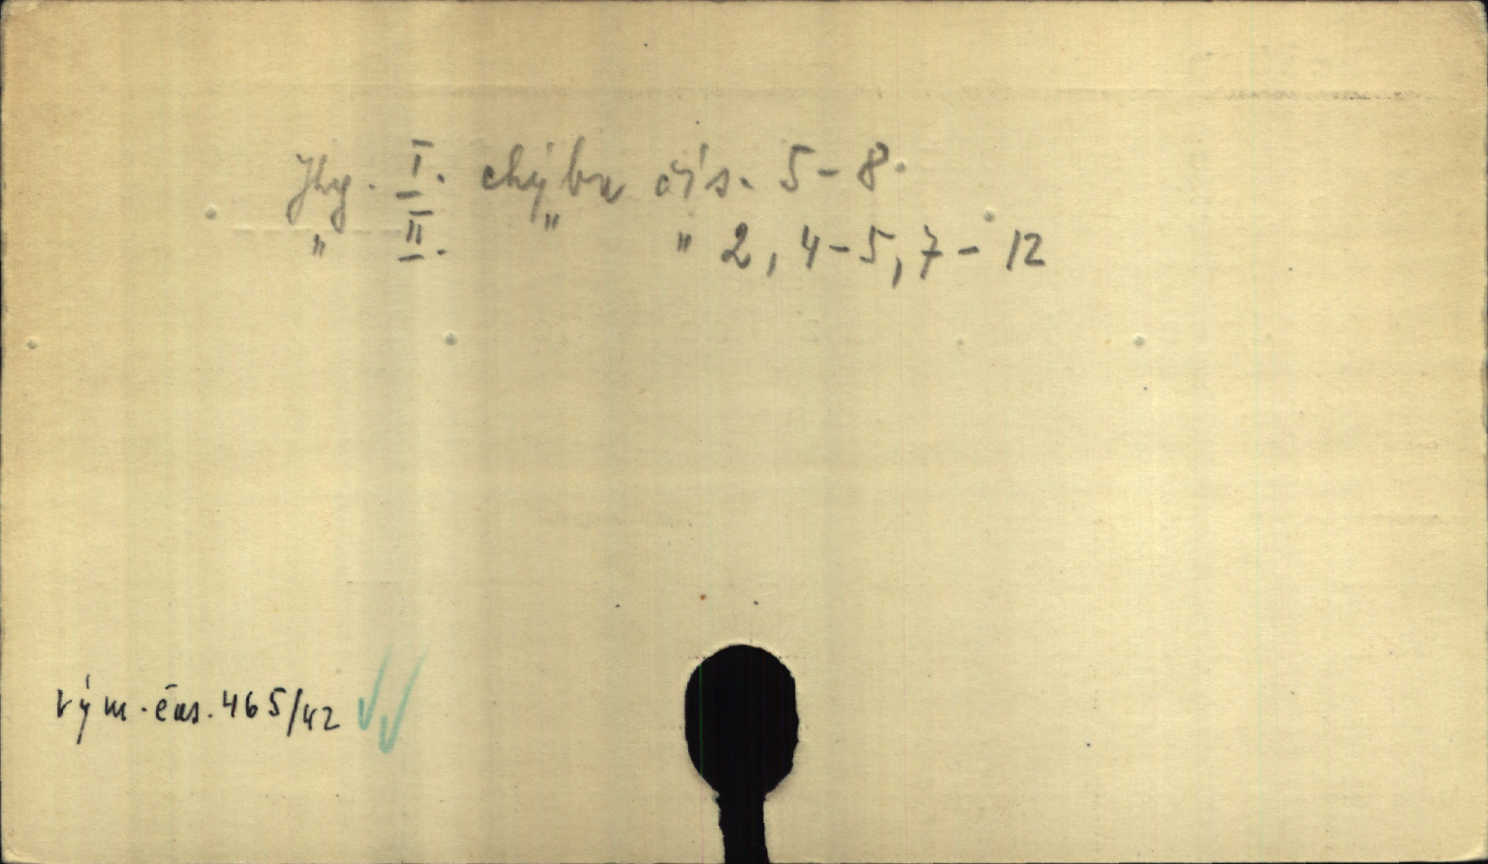 Jhg. I. chýba čís. 5-8.
" II. " " 2, 4-5, 7-12
vým. čas. 465/42